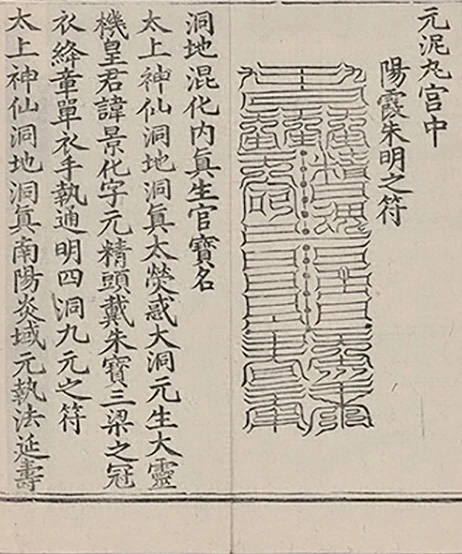 元泥丸宮中
陽霞朱明之符
洞地混化内真生官寶名
太上神仙洞地洞真太熒惑大洞元生大靈
機皇君諱景化字元精頭戴朱寶三梁之冠
衣絳章單衣手執通明四洞九元之符
太上神仙洞地洞真南陽炎域元執法延壽